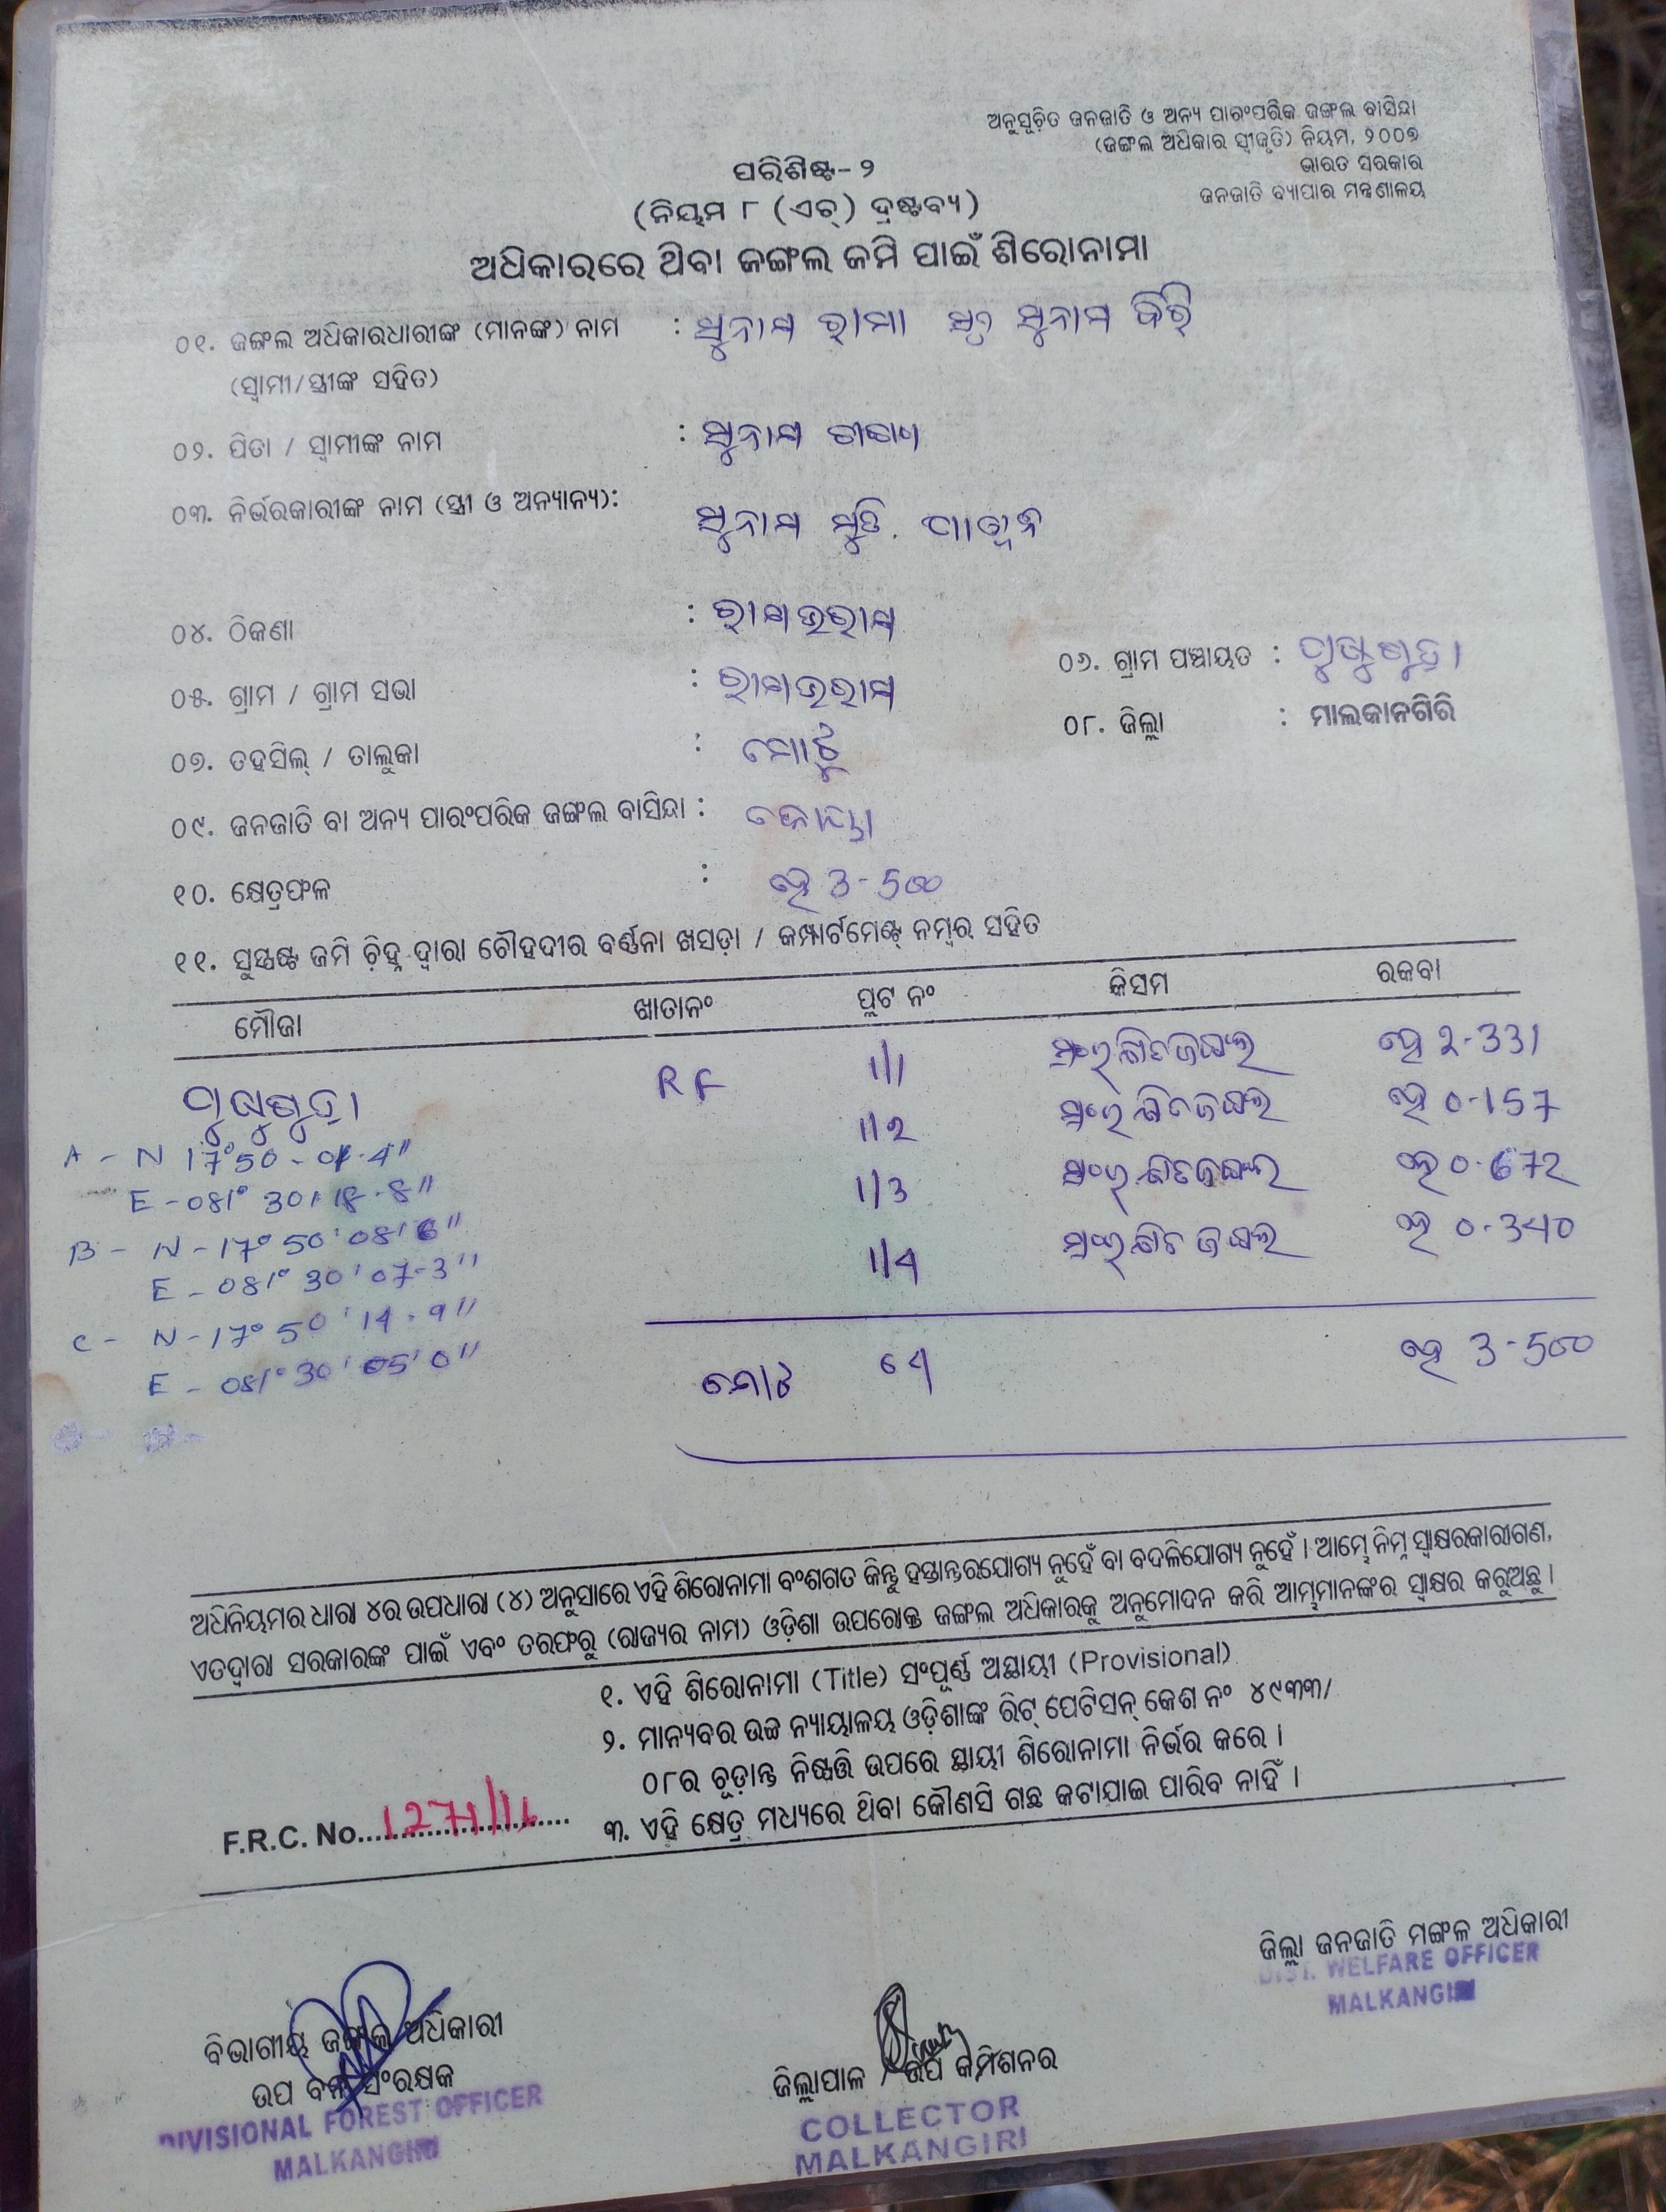 ଅନୁସୂଚିତ ଜନଜାତି ଓ ଅନ୍ୟ ପାରଂପରିକ ଜଙ୍ଗଲ ବାସିନ୍ଦା
(ଜଙ୍ଗଲ ଅଧିକାର ସ୍ୱୀକୃତି) ନିୟମ, ୨୦୦୭
ଭାରତ ସରକାର
ଜନଜାତି ବ୍ୟାପାର ମନ୍ତ୍ରଣାଳୟ
ପରିଶିଷ୍ଟ-୨
(ନିୟମ ୮ (ଏଚ୍) ଦ୍ରଷ୍ଟବ୍ୟ)
ଅଧିକାରରେ ଥିବା ଜଙ୍ଗଲ ଜମି ପାଇଁ ଶିରୋନାମା
୦୧. ଜଙ୍ଗଲ ଅଧିକାରଧାରୀଙ୍କ (ମାନଙ୍କ) ନାମ : ସୁନାମ ରାମା ସୁନାମ
(ସ୍ୱାମୀ/ସ୍ତ୍ରୀଙ୍କ ସହିତ)
୦୨. ପିତା / ସ୍ୱାମୀଙ୍କ ନାମ : ସୁନାମ
୦୩. ନିର୍ଭରକାରୀଙ୍କ ନାମ (ସ୍ତ୍ରୀ ଓ ଅନ୍ୟାନ୍ୟ): ସୁନାମ
୦୪. ଠିକଣା :
୦୫. ଗ୍ରାମ / ଗ୍ରାମ ସଭା :
୦୬. ଗ୍ରାମ ପଞ୍ଚାୟତ :
୦୭. ତହସିଲ୍ / ତାଲୁକା : ମୋଟୁ
୦୮. ଜିଲ୍ଲା : ମାଲକାନଗିରି
୦୯. ଜନଜାତି ବା ଅନ୍ୟ ପାରଂପରିକ ଜଙ୍ଗଲ ବାସିନ୍ଦା : କୋୟା
୧୦. କ୍ଷେତ୍ରଫଳ : ହେ 3-500
୧୧. ସୁସ୍ପଷ୍ଟ ଜମି ଚିହ୍ନ ଦ୍ୱାରା ଚୌହଦୀର ବର୍ଣ୍ଣନା ଖସଡ଼ା / କମ୍ପାର୍ଟମେଣ୍ଟ୍ ନମ୍ବର ସହିତ
ମୌଜା ଖାତାନଂ ପ୍ଲଟ ନଂ କିସମ ରକବା
RF 1/1 ସଂରକ୍ଷିତ ଜଙ୍ଗଲ ହେ 2-331
1/2 ସଂରକ୍ଷିତ ଜଙ୍ଗଲ ହେ 0-157
1/3 ସଂରକ୍ଷିତ ଜଙ୍ଗଲ ହେ 0-672
1/4 ସଂରକ୍ଷିତ ଜଙ୍ଗଲ ହେ 0-340
A - N 17°50
E - 081° 30' 18.8"
B - N - 17° 50' 08' 6"
E - 081° 30' 07-3"
C - N - 17° 50' 14.9"
E - 081° 30' 05' 0"
ମୋଟ ହେ 3-500
ଅଧିନିୟମର ଧାରା ୪ର ଉପଧାରା (୪) ଅନୁସାରେ ଏହି ଶିରୋନାମା ବଂଶଗତ କିନ୍ତୁ ହସ୍ତାନ୍ତରଯୋଗ୍ୟ ନୁହେଁ ବା ବଦଳିଯୋଗ୍ୟ ନୁହେଁ । ଆମ୍ଭେ ନିମ୍ନ ସ୍ୱାକ୍ଷରକାରୀଗଣ,
ଏତଦ୍ୱାରା ସରକାରଙ୍କ ପାଇଁ ଏବଂ ତରଫରୁ (ରାଜ୍ୟର ନାମ) ଓଡ଼ିଶା ଉପରୋକ୍ତ ଜଙ୍ଗଲ ଅଧିକାରକୁ ଅନୁମୋଦନ କରି ଆମ୍ଭମାନଙ୍କର ସ୍ୱାକ୍ଷର କରୁଅଛୁ ।
୧. ଏହି ଶିରୋନାମା (Title) ସଂପୂର୍ଣ୍ଣ ଅସ୍ଥାୟୀ (Provisional)
୨. ମାନ୍ୟବର ଉଚ୍ଚ ନ୍ୟାୟାଳୟ ଓଡ଼ିଶାଙ୍କ ରିଟ୍ ପେଟିସନ୍ କେଶ ନଂ ୪୯୩୩/
୦୮ର ଚୂଡ଼ାନ୍ତ ନିଷ୍ପତ୍ତି ଉପରେ ସ୍ଥାୟୀ ଶିରୋନାମା ନିର୍ଭର କରେ ।
୩. ଏହି କ୍ଷେତ୍ର ମଧ୍ୟରେ ଥିବା କୌଣସି ଗଛ କଟାଯାଇ ପାରିବ ନାହିଁ ।
F.R.C. No. 1271/11
ଜିଲ୍ଲା ଜନଜାତି ମଙ୍ଗଳ ଅଧିକାରୀ
DIST. WELFARE OFFICER
MALKANGIRI
ବିଭାଗୀୟ ଜଙ୍ଗଲ ଅଧିକାରୀ
ଉପ ବନ ସଂରକ୍ଷକ
DIVISIONAL FOREST OFFICER
MALKANGIRI
ଜିଲ୍ଲାପାଳ / ଉପ କମିଶନର
COLLECTOR
MALKANGIRI